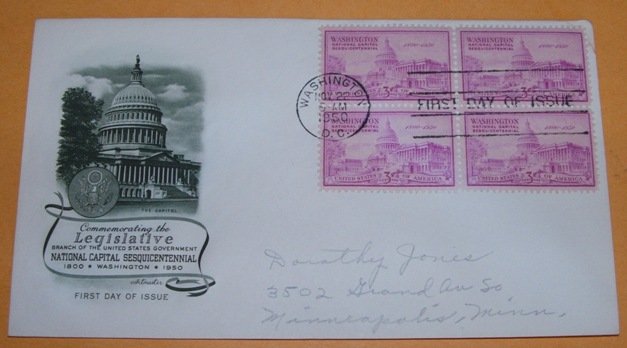 THE CAPITOL
Commemorating the
Legislative
BRANCH OF THE UNITED STATES GOVERNMENT
NATIONAL CAPITAL SESQUICENTENNIAL
1800 ★ WASHINGTON ★ 1950
Artmaster
FIRST DAY OF ISSUE
WASHINGTON
NATIONAL CAPITAL
SESQUICENTENNIAL
1800-1950
3¢
WASHINGTON
NATIONAL CAPITAL
SESQUICENTENNIAL
1800-1950
3¢
WASHINGTON
NOV 22
AM
1950
D.C.
FIRST DAY OF ISSUE
WASHINGTON
NATIONAL CAPITAL
SESQUICENTENNIAL
1800-1950
UNITED STATES 3¢ OF AMERICA
WASHINGTON
NATIONAL CAPITAL
SESQUICENTENNIAL
1800-1950
UNITED STATES 3¢ OF AMERICA
Dorothy Jones
3502 Grand Av So
Minneapolis, Minn.